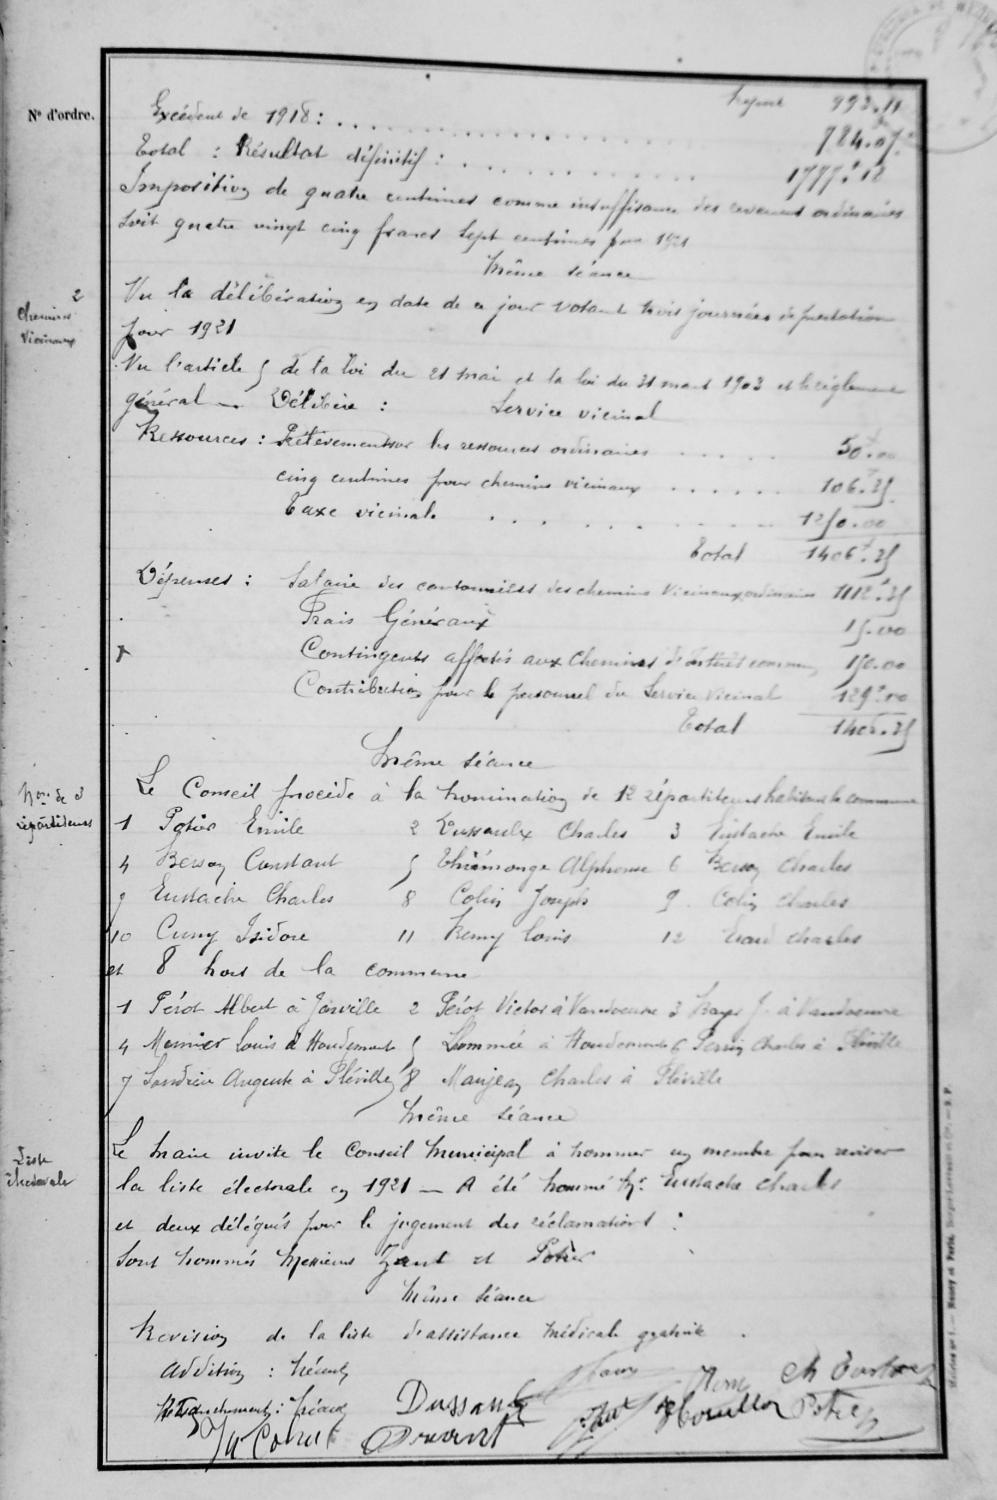 N° d'ordre.
Report 993.11
Excédent de 1918 : 784.07
Total : Résultat définitif : 1777.18
Imposition de quatre centimes comme insuffisance des revenus ordinaires
soit quatre vingt cinq francs sept centimes pour 1921
Même séance
2
Chemins
Vicinaux
Vu la délibération en date de ce jour votant trois journées de prestation
pour 1921
Vu l'article 5 de la loi du 21 mai et la loi du 31 mars 1903 et le règlement
général — Délibère : Service vicinal
Ressources : Prélèvement sur les ressources ordinaires 50.00
cinq centimes pour chemins vicinaux 106.25
Taxe vicinale 1250.00
Total 1406.25
Dépenses : Salaire des cantonniers des chemins vicinaux ordinaires 1112.25
Frais Généraux 15.00
Contingents affectés aux chemins d'intérêt commun 150.00
Contribution pour le personnel du Service vicinal 129.00
Total 1406.25
Même séance
Non de 3
répartiteurs
Le Conseil procède à la nomination de 12 répartiteurs habitant la commune
1 Potier Emile 2 Dussaulx Charles 3 Eustache Emile
4 Berson Constant 5 Thiémonge Alphonse 6 Berson Charles
7 Eustache Charles 8 Colin Joseph 9 Colin Charles
10 Cuny Isidore 11 Remy Louis 12 Charles
et 8 hors de la commune
1 Pérot Albert à Jarville 2 Pérot Victor à Vandoeuvre 3 J. à Vandoeuvre
4 Meunier Louis à Houdemont 5 Lhommée à Houdemont 6 Perrin Charles à Fléville
7 Auguste à Fléville 8 Manjean Charles à Fléville
Même séance
Liste
électorale
Le Maire invite le Conseil Municipal à nommer un membre pour reviser
la liste électorale en 1921 — A été nommé Mr. Eustache Charles
et deux délégués pour le jugement des réclamations :
Sont nommés Messieurs et Potier
Même séance
Revision de la liste d'assistance médicale gratuite.
Addition : Néant
Retranchement : Néant
Ch Eustache
Dussaulx
Potier